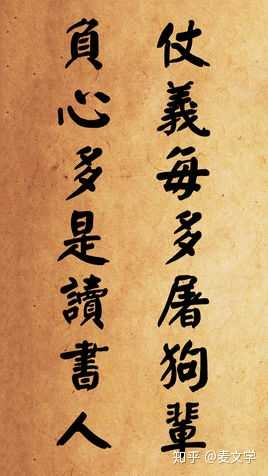 仗義每多屠狗輩
負心多是讀書人
知乎 @麦文学